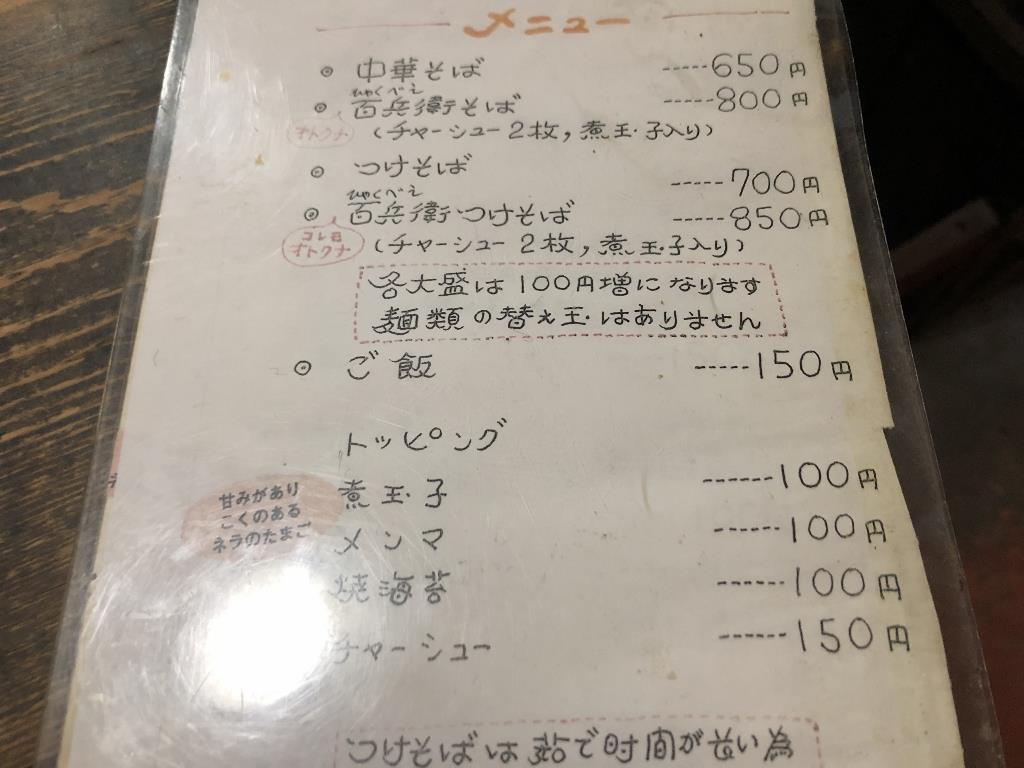 メニュー
中華そば -----650円
ひゃくべえ
百兵衛そば -----800円
オトクナ (チャーシュー2枚,煮玉子入り)
つけそば -----700円
ひゃくべえ
百兵衛つけそば -----850円
コレモ
オトクナ
(チャーシュー2枚,煮玉子入り)
各大盛は100円増になります
麺類の替え玉はありません
ご飯 -----150円
トッピング
煮玉子 ------100円
甘みがあり
こくのある
ネラのたまご
メンマ ------100円
焼海苔 ------100円
チャーシュー ------150円
つけそばは茹で時間が長い為